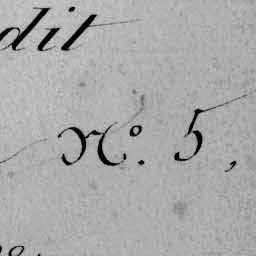 dit
No. 5,